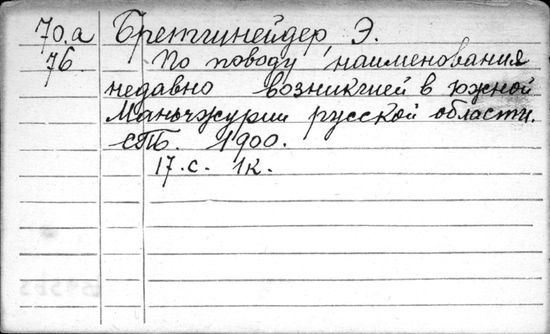 70.а Бретшнейдер, Э.
76. По поводу наименования
недавно возникшей в южной
Маньчжурии русской области.
СПб. 1900.
17.с. 1к.